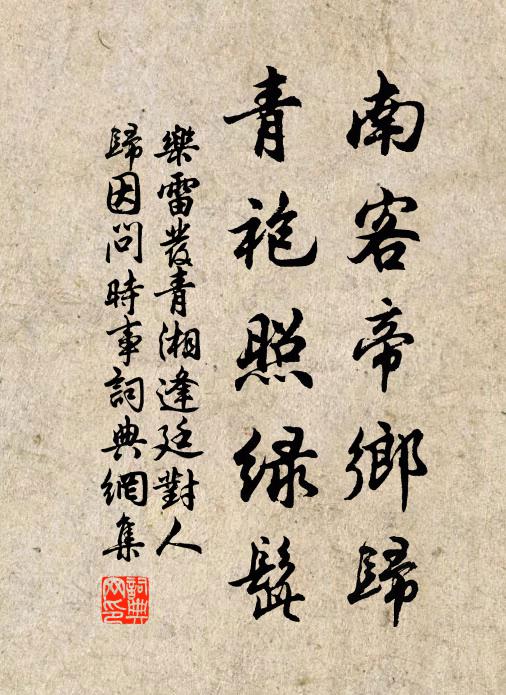 南客帝鄉歸
青袍照緑髭
樂雷發青湘逢廷對人
歸因問時事詞典網集
詞典